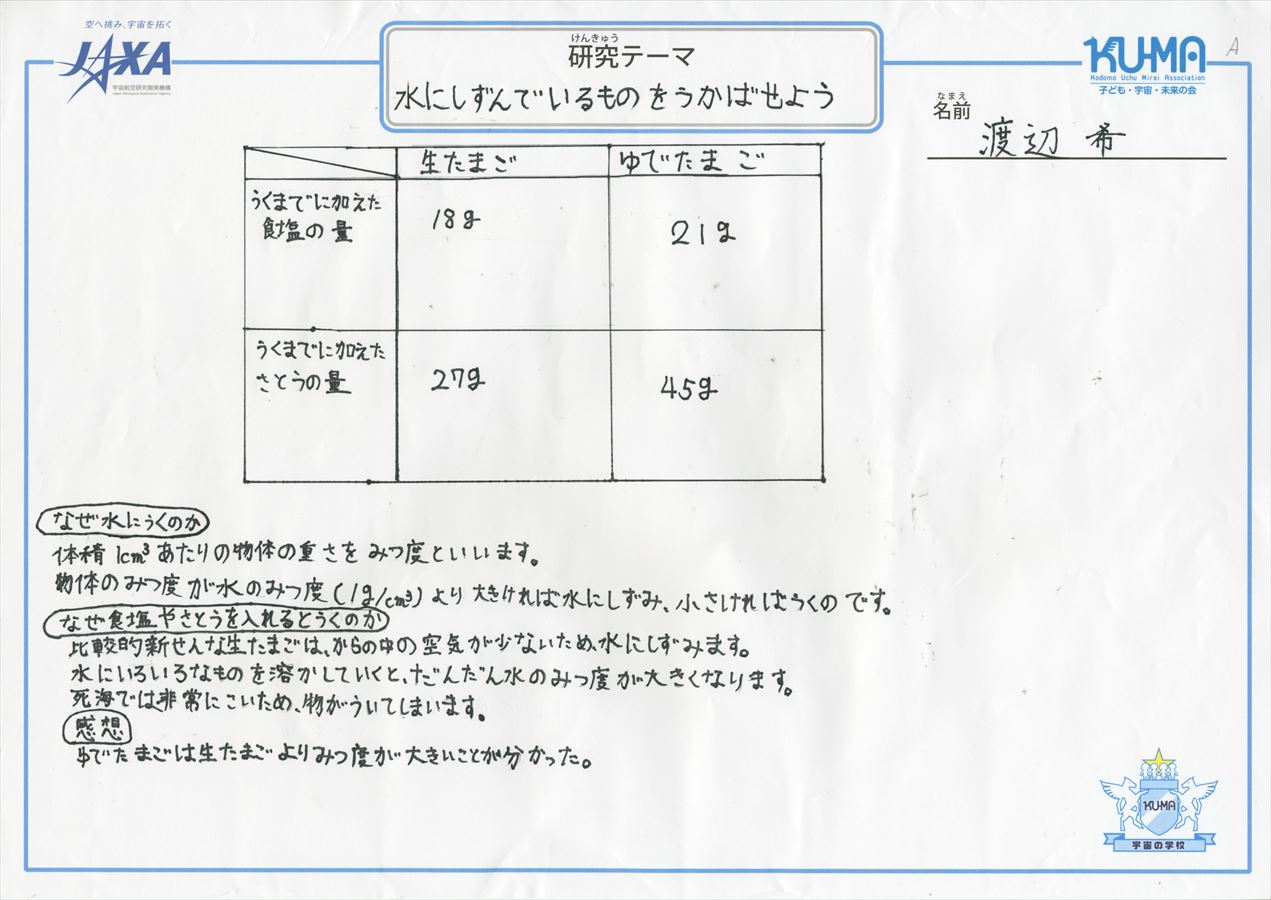 空へ挑み、宇宙を拓く
JAXA
宇宙航空研究開発機構
Japan Aerospace Exploration Agency
けんきゅう
研究テーマ
水にしずんでいるものをうかばせよう
KU-MA
Kodomo Uchu Mirai Association
子ども・宇宙・未来の会
A
なまえ
名前
渡辺 希
生たまご ゆでたまご
うくまでに加えた
食塩の量
18g 21g
うくまでに加えた
さとうの量
27g 45g
なぜ水にうくのか
体積1cm³あたりの物体の重さをみつ度といいます。
物体のみつ度が水のみつ度(1g/cm³)より大きければ水にしずみ、小さければうくのです。
なぜ食塩やさとうを入れるとうくのか
比較的新せんな生たまごは、からの中の空気が少ないため、水にしずみます。
水にいろいろなものを溶かしていくと、だんだん水のみつ度が大きくなります。
死海では、非常にこいため、物がういてしまいます。
感想
ゆでたまごは生たまごよりみつ度が大きいことが分かった。
KU-MA
宇宙の学校